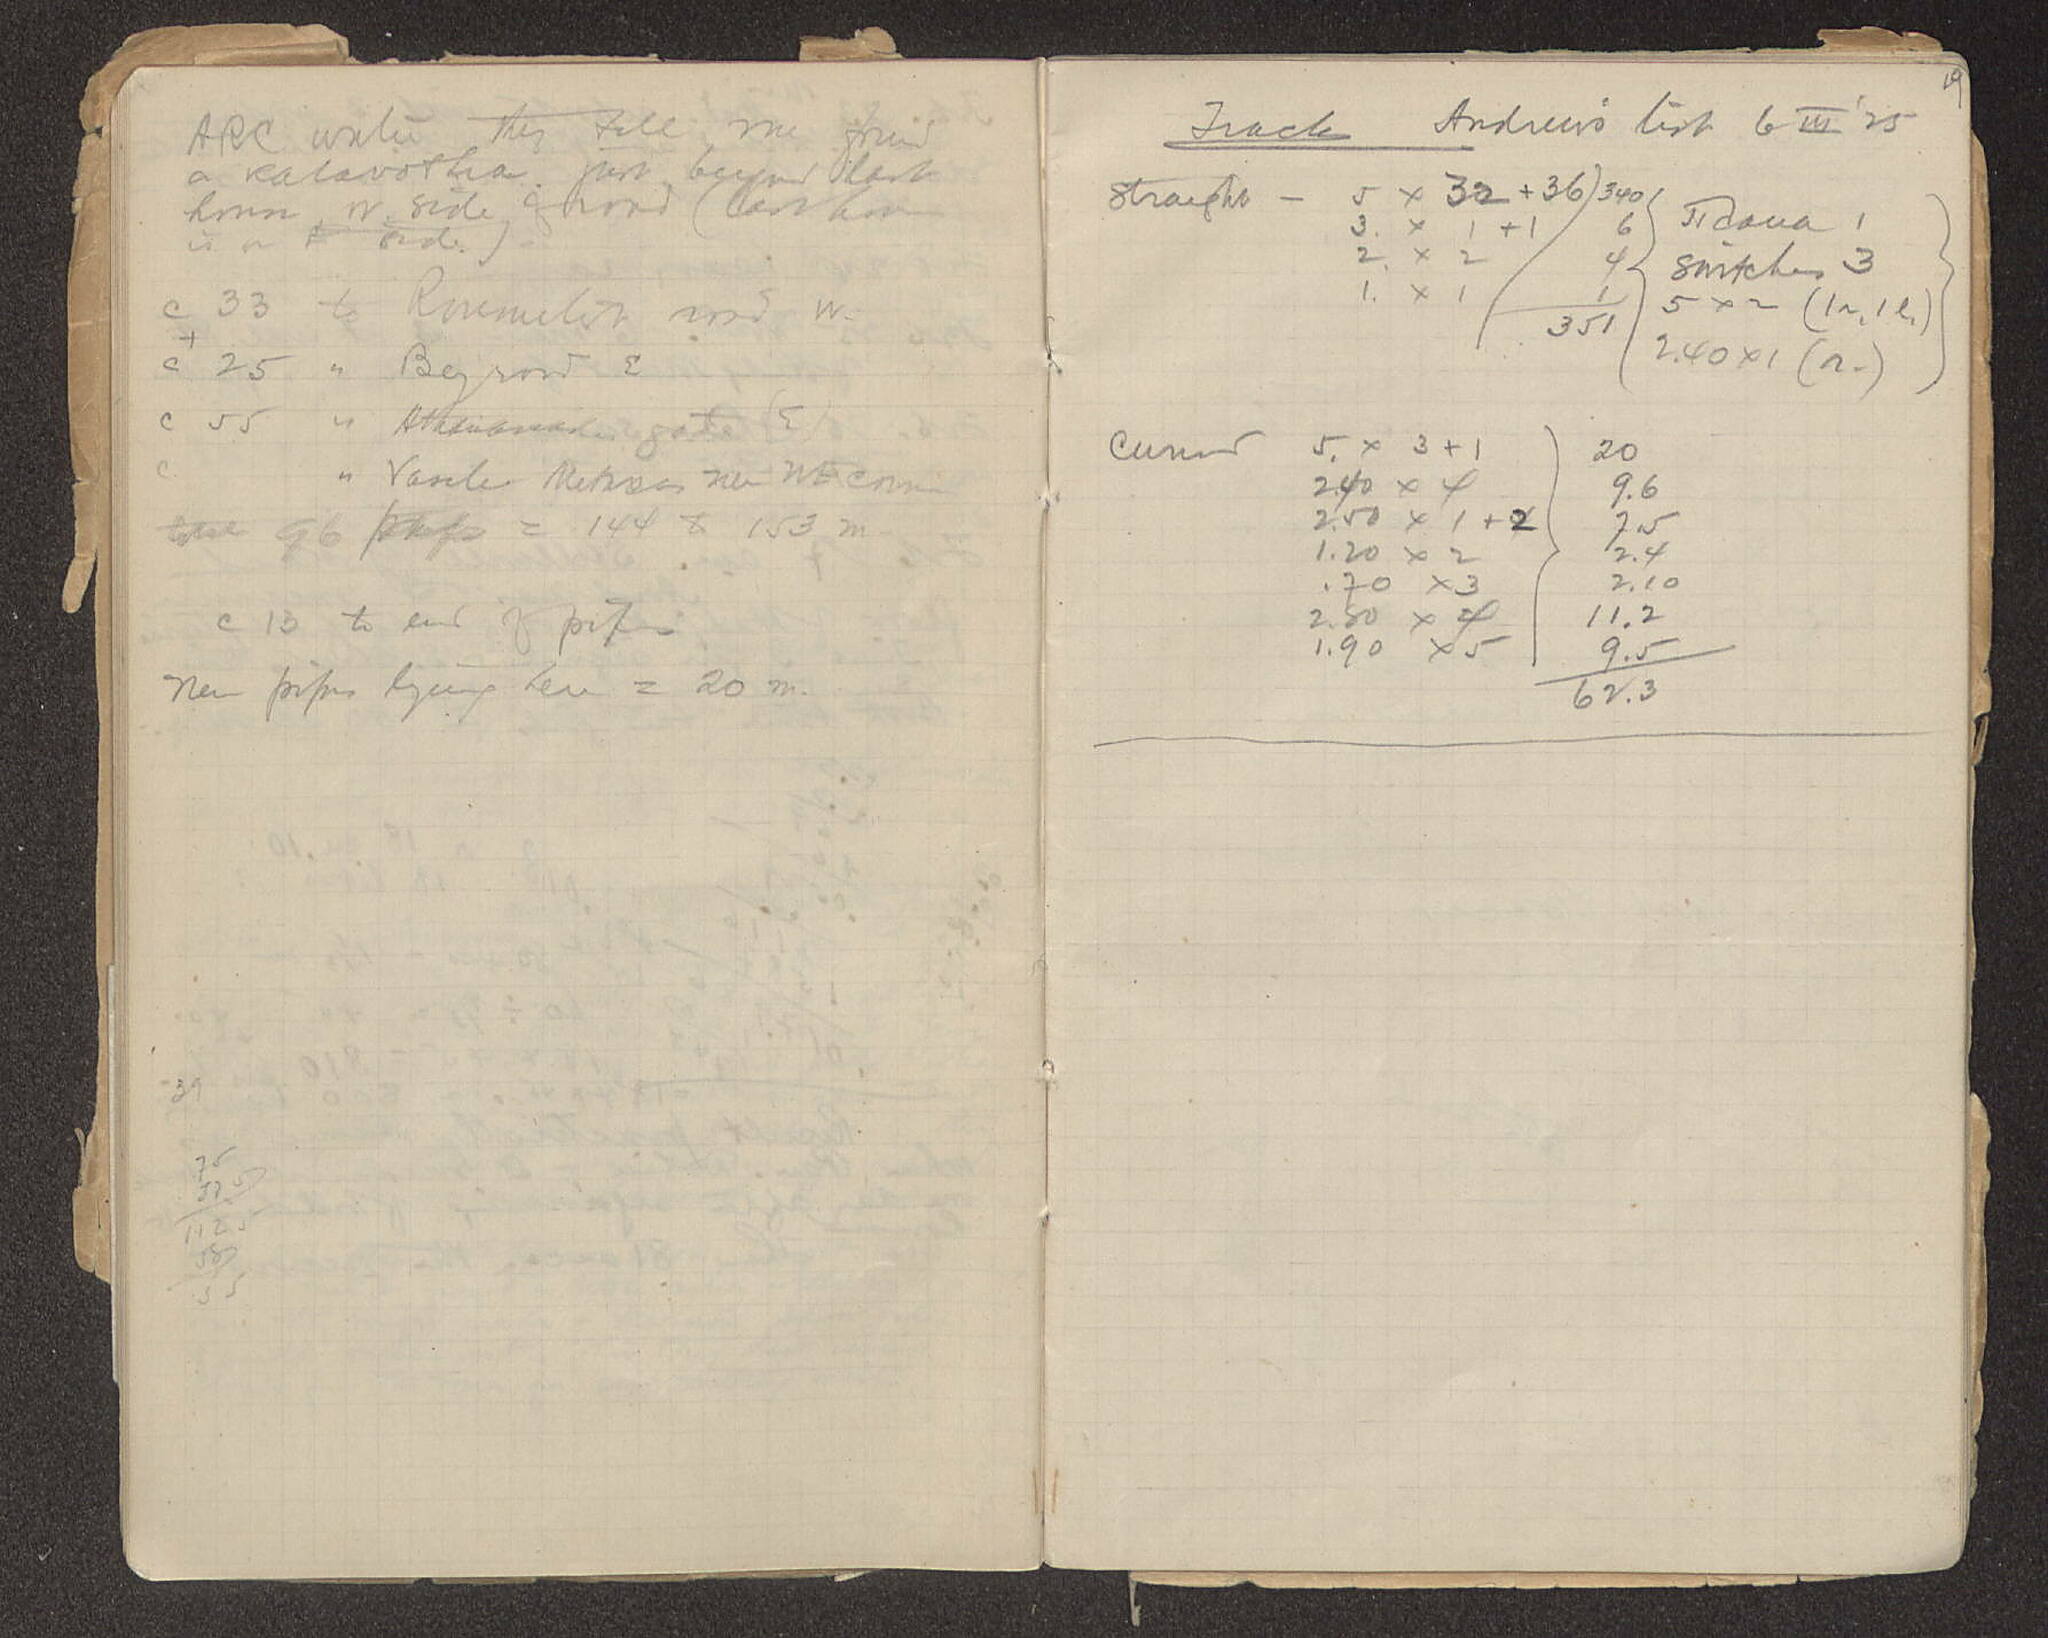 ARC water they tell me found
a katavothra just beyond last
house W. side of road (last house
is on E side.)
c 33 to road W.
c+ 25 " Bey road E
c 55 " gate (E)
c " Vasele near NE corner
96 = 144 to 153 m
c 13 to end of pipes
New pipes lying here = 20 m.
39
75
112
55
19
Track Andrew's list 6 III '25
Straight - 5 x 32 + 36) 340
3. x 1 + 1 6
2. x 2 4
1. x 1 1
351
1
Switches 3
5 x 2 (1 r, 1 l.)
2.40 x 1 (r.)
Curved 5. x 3 + 1 20
2.40 x 4 9.6
2.50 x 1 + 2 7.5
1.20 x 2 2.4
.70 x 3 2.10
2.80 x 4 11.2
1.90 x 5 9.5
62.3